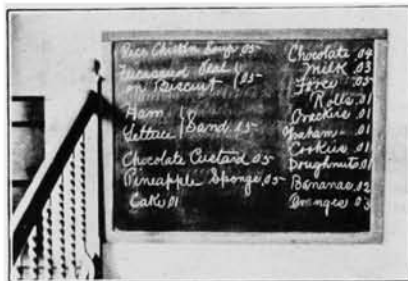 Rice Chicken Soup .05
Fricasseed Veal
on Biscuit } .05
Ham
Lettuce } Sand .05
Chocolate Custard .05
Pineapple Sponge .05
Cake .01
Chocolate .04
Milk .03
Force .05
Rolls .01
Crackers .01
Graham .01
Cookies .01
Doughnuts .01
Bananas .02
Oranges .03